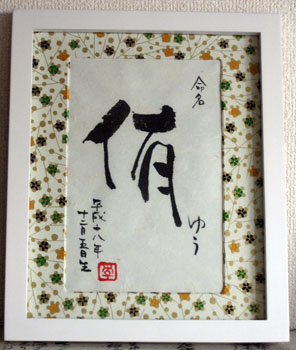 命名
侑
ゆう
平成十八年
十二月五日生